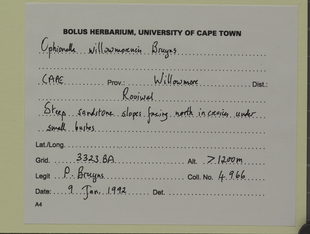 BOLUS HERBARIUM, UNIVERSITY OF CAPE TOWN
Ophionella willowmorensis Bruyns
CAPE Prov.: Willowmore Dist.:
Rooiwal
Steep sandstone slopes facing north in crevices under
small bushes
Lat./Long.
Grid. 3323 BA Alt. >1200m
Legit P. Bruyns Coll. No. 4966
Date: 9 Jan. 1992 Det.
A4